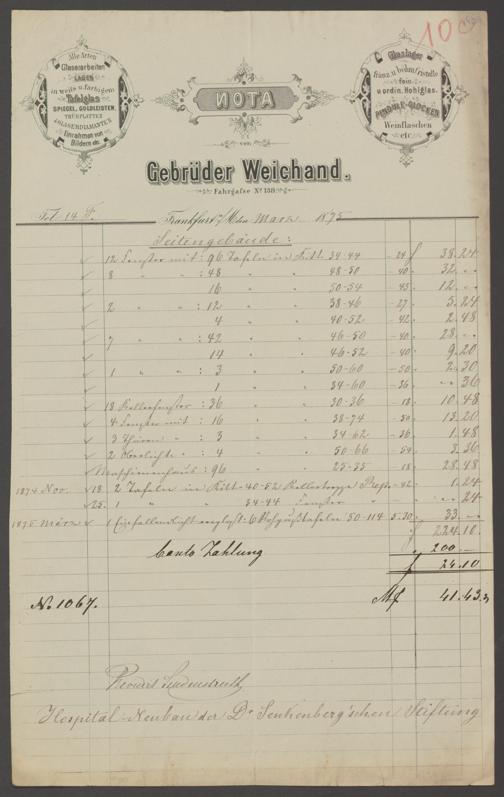 100
Alle Arten
Glaserarbeiten
LAGER
in weils u. farbigem
Tafelglas
SPIEGEL, GOLDLEISTEN,
TRUMPLATTEN
GLASERDIAMANTEN
Einrahmen von
Bildern etc.
Glaslager
franz. u. böhm. Cristalle
fein
u. ordin. Hohlglas.
PENDULE-GLOCKEN
Weinflaschen
etc.
NOTA
von
Gebrüder Weichand.
Fahrgasse No. 138
Fol. 14 F. Frankfurt a/M den März 1875
Seitengebäude:
12 Fenster mit : 96 Tafeln in Kitt 34-44 - 24 f 38.24
8 " " : 48 " " 48-50 - 40 " 32.--
16 " " 50-54 - 45 " 12.--
2 " " : 12 " " 38-46 - 27 " 5.24
4 " " 40-52 - 42 " 2.48
7 " " : 42 " " 46-50 - 40 " 28.--
14 " " 46-52 - 40 " 9.20
1 " " : 3 " " 50-60 - 50 " 2.30
1 " " 34-60 - 36 " --.36
18 Kellerfenster : 36 " " 30-36 - 18 " 10.48
4 Fenster mit : 16 " " 38-74 - 50 " 13.20
3 Thüren " : 3 " " 34-62 - 36 " 1.48
2 Oberlichte " : 4 " " 50-66 - 54 " 3.36
Maschinenhaus : 96 " " 25-35 - 18 " 28.48
1874 Nov. 18 2 Tafeln in Kitt 40-52 Kellertreppe - 42 " 1.24
25. 1 " " " 34-44 Fenster " --.24
1875 März 1 Einfallendlicht verglast: 6 50-114 5.30 " 33.--
f 224.10.
Conto Zahlung " 200.--
f 24.10
No. 1067. Mf 41.43
Hospital-Neubau der Dr. Senkenberg'schen Stiftung